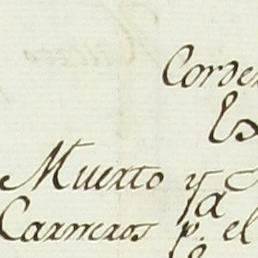 Corde
Es
Muerto y
la
Carneros p. el